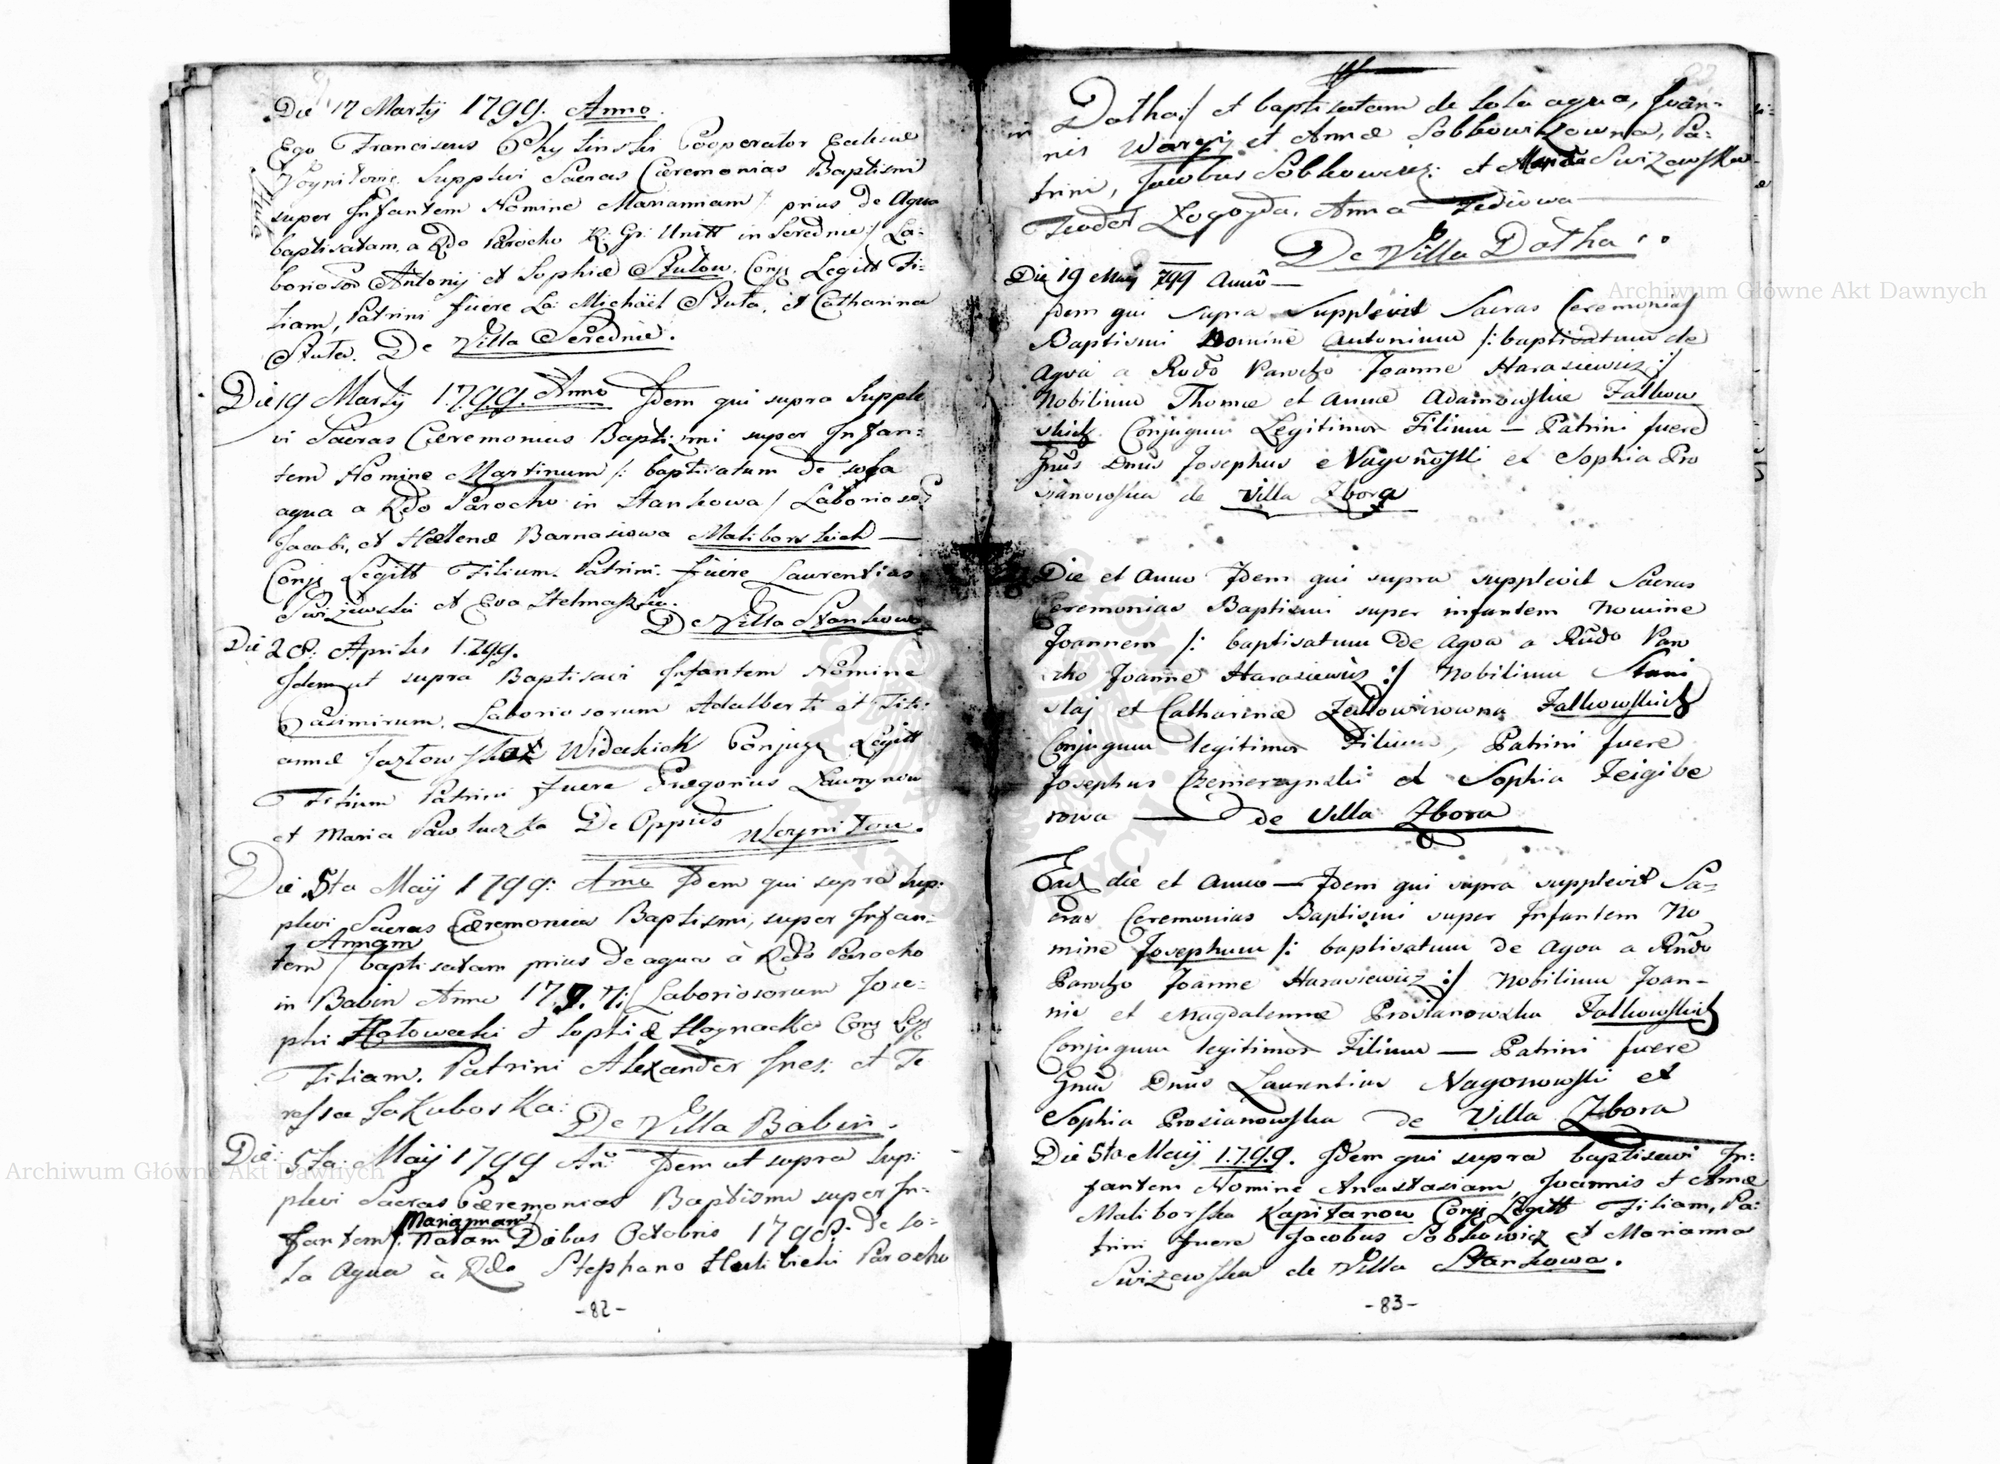 Die 17 Martij 1799. Anno.
Ego Franciscus Chylinski Cooperator Ecclesiæ
Woyniloviæ Supplevi Sacras Cæremonias Baptismi
super Infantem Nomine Mariannam /: prius de Agua
baptisatam a Rdo Parocho R: Gr: Unitt in Serednie :/ La-
Stuła
boriosor̃ Antonij et Sophiæ Stutow. Conjg Legitt Fi-
liam, Patrini fuere La: Michaël Stuta, et Catharina
Stuta. De Villa Serednie.
Die 19 Martij 1799. Anno Idem qui supra Supple
vi Sacras Cæremonias Baptismi super Infan-
tem Nomine Martinum /: baptisatum de sola
agua a Rdo Parocho in Stankowa / Laborioso:
Jacobi, et Hellenæ Barnasiowa Maliborskich —
Conjg Legitt Filium. Patrini. fuere Laurentius
Swizewski et Eva Stelmaszka.
De Villa Stankowa
Die 28. Aprilis 1799.
Idem ut supra Baptisavi Infantem Nomine
Casimirum. Laboriosorum Adalberti et Titi-
annæ Jazłowskich Widackich Conjugg Legitt
Filium Patrini fuere Gregorius Lawrynow
et Maria Pawluczka De Oppido Woynitow.
Die 5ta Maij 1799: Anno Idem qui supra sup:
plevi Sacras Cæremonias Baptismi, super Infan-
Annam
tem / baptisatam prius de agua à Rdo Parocho
in Babin Anno 1797:/ Laboriosorum Jose-
phi Hołowecki et Sophiæ Hoynacka Conj Legg
Filiam. Patrini Alexander Ines: et Te
ressa Jakuboska: De Villa Babin.
Die: 5ta: Maij 1799 An: Idem ut supra sup:
plevi Sacras Cæremonias Baptismi super In-
Mariannam
fantem /: Natam Diebus Octobris 1798. de so-
la Agua à Rdo Stephano Parocho
-82-
in Dotha:/ et baptisatam de sola agua, Joan-
nis Wargij et Annæ Sobkowiczowna, Pa:
trini, Jacobus Sobkowicz: et Swizewska
Teodor Anna Fediowa
De Villa Dotha.
Die 19 Maij 799 Anno —
Idem qui supra Supplevit Sacras Ceremonias
Baptismi Nomine Antonium /: baptisatum de
Agva a Rndo Parocho Joanne Harasiewicz :/
Nobilium Thomæ et Annæ Adamowskie Falkow
skich Conjugum Legitimor Filium — Patrini fuere
Gnus Dnus Josephus Nagonoski et Sophia Pro
sianowska de Villa Zbora
Die et Anno Idem qui supra supplevit Sacras
Ceremonias Baptismi super infantem Nomine
Joannem /: baptisatum de Agva a Rndo Paro
cho Joanne Harasiewicz :/ Nobilium Stani
slaj et Catharinæ Falkowskich
Conjugum legitimor Filium, Patrini fuere
Josephus Czemerzynski et Sophia Zeigibe
rowa — de Villa Zbora
Ead die et Anno — Idem qui supra supplevit Sa-
cras Ceremonias Baptismi super Infantem No
mine Josephum /: baptisatum de Agva a Rndo
Parocho Joanne Harasiewicz :/ Nobilium Joan-
nis et Magdalennæ Prosianowska Falkowskich
Conjugum legitimor Filium — Patrini fuere
Gnus Dnus Laurentius Nagonowski et
Sophia Prosianowska de Villa Zbora
Die 5ta Maij 1799. Idem qui supra baptisavi In-
fantem Nomine Anastasiam, Joannis et Annæ
Maliborska Kapitanow Conjg Legitt Filiam, Pa:
trini fuere Jacobus Sobkowicz et Marianna
Swizewska de Villa Stankowa.
-83-
Archiwum Główne Akt Dawnych
Archiwum Główne Akt Dawnych